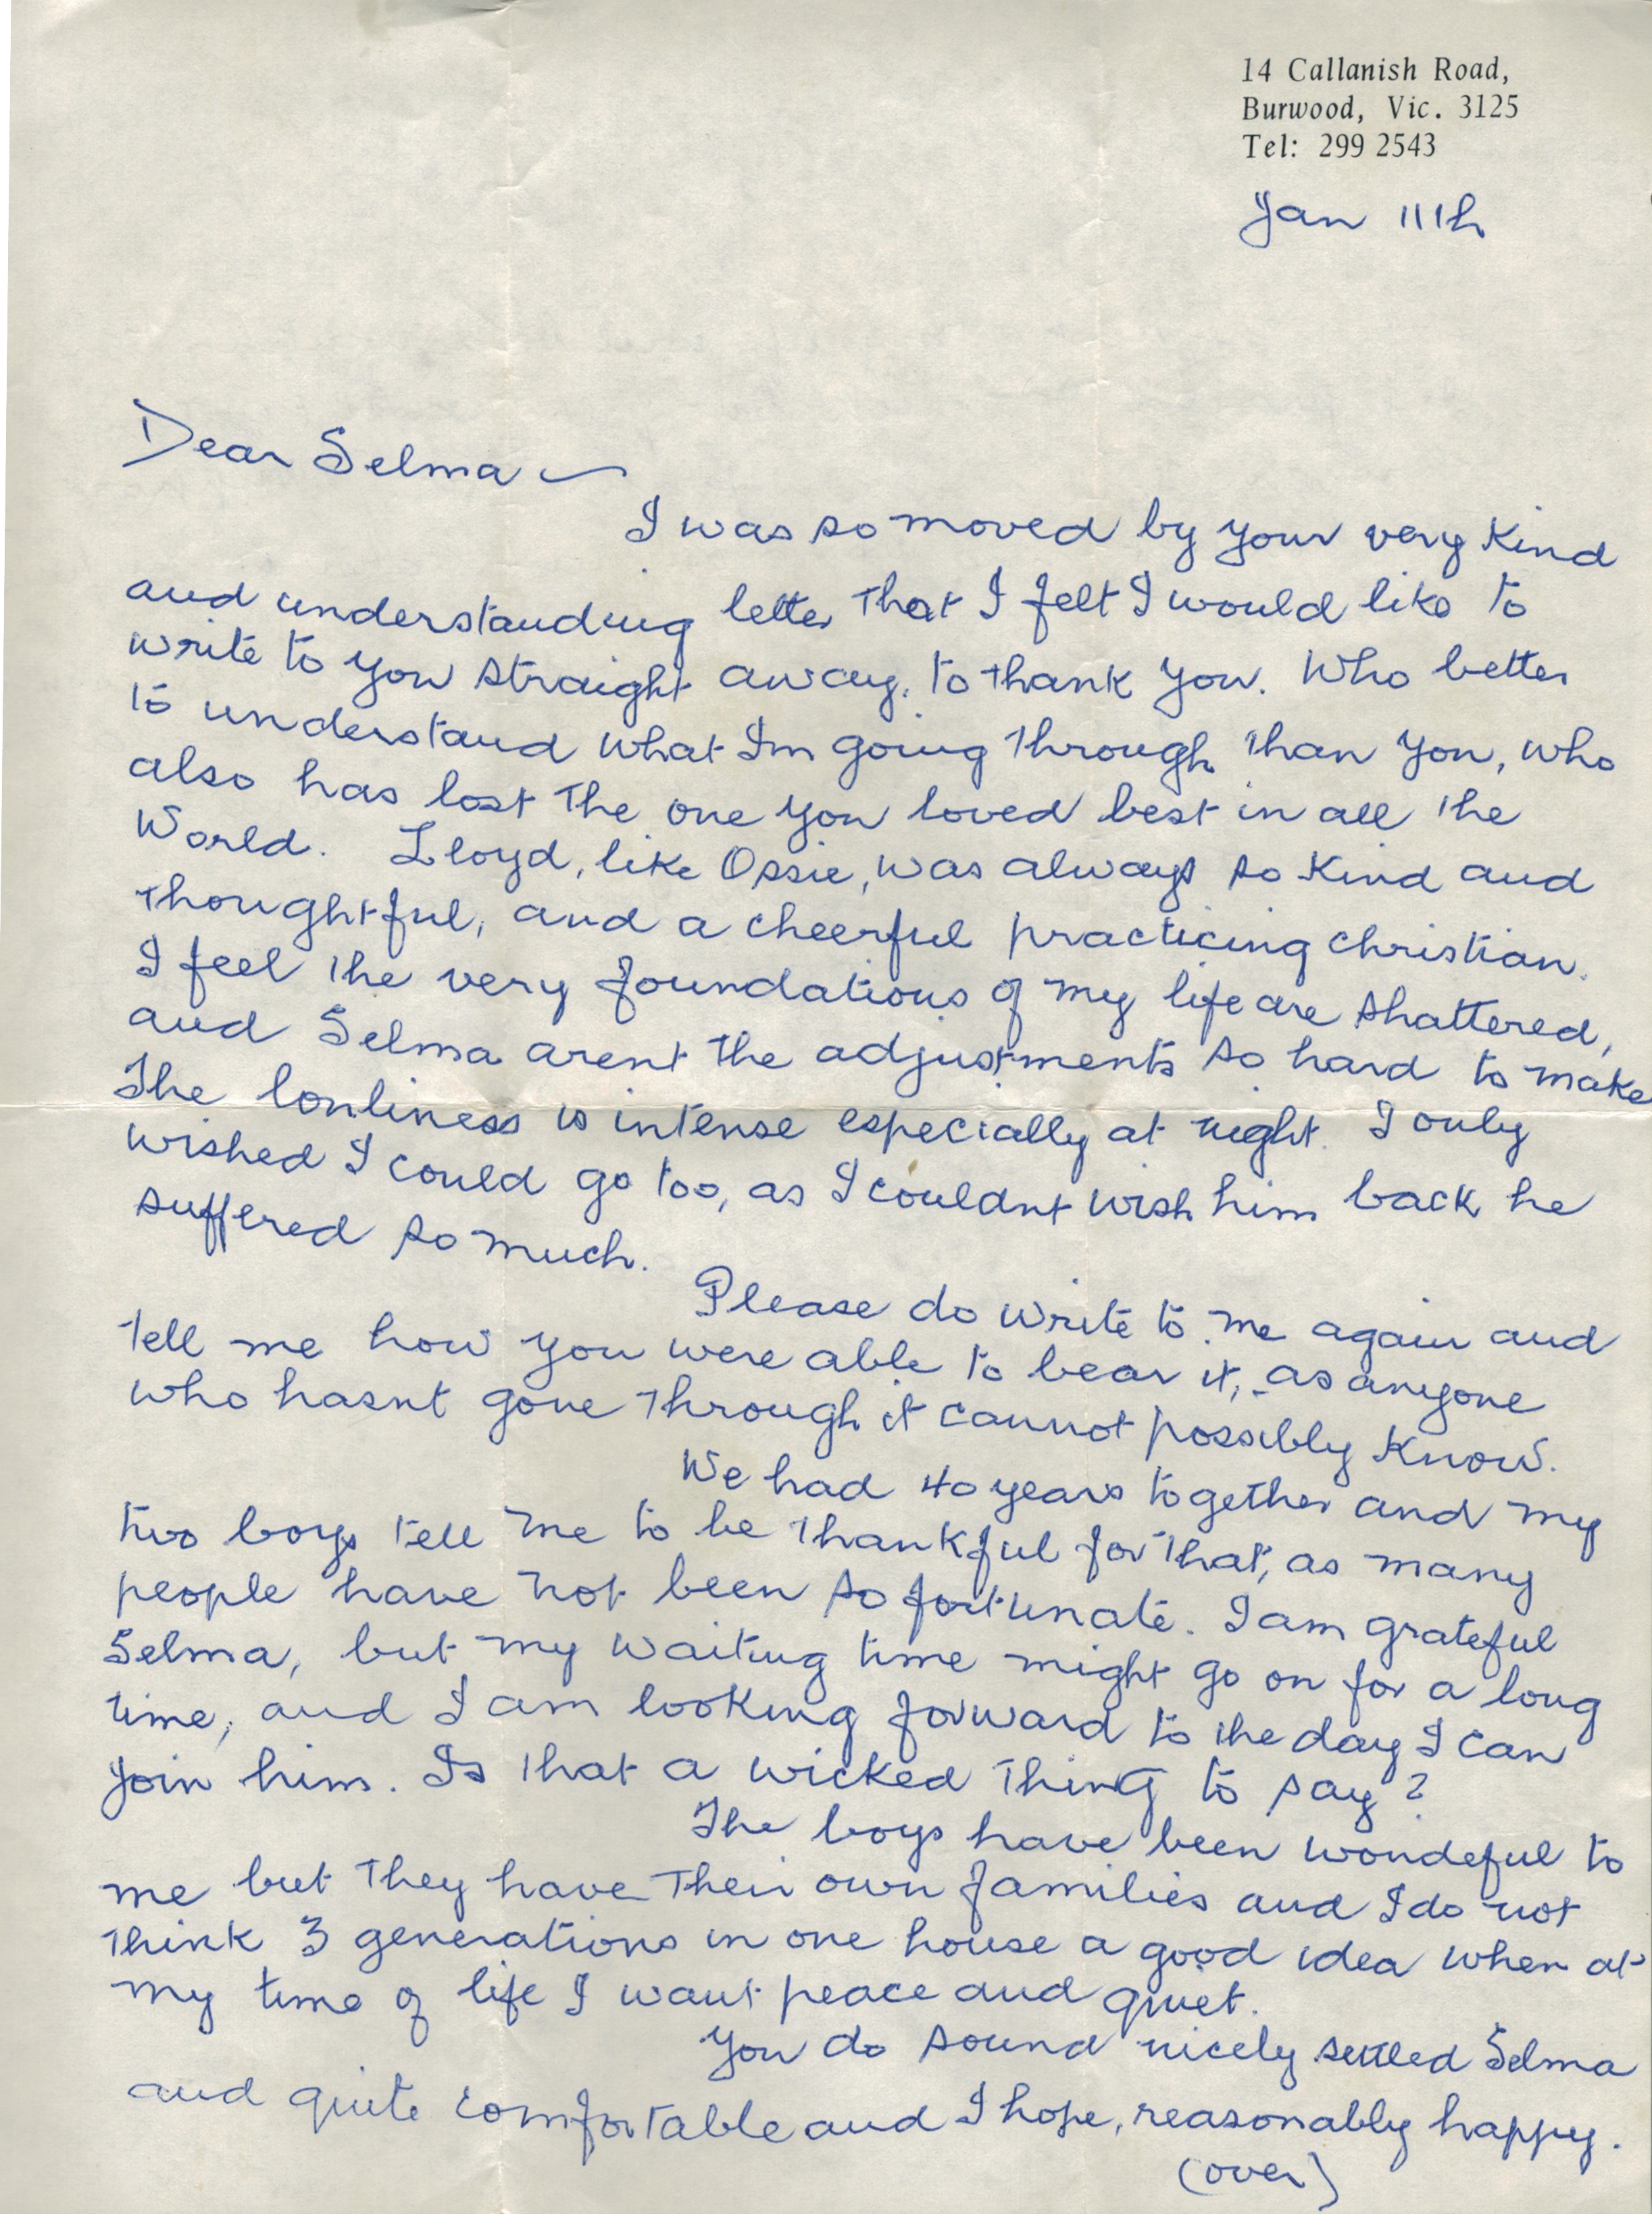 14 Callanish Road,
Burwood, Vic. 3125
Tel: 299 2543
Jan 11th
Dear Selma —
I was so moved by your very kind
and understanding letter that I felt I would like to
write to you straight away, to thank you. Who better
to understand what Im going through than you, who
also has lost the one you loved best in all the
World. Lloyd, like Ossie, was always so kind and
thoughtful, and a cheerful practicing christian.
I feel the very foundations of my life are shattered,
and Selma arent the adjustments so hard to make
The lonliness is intense especially at night. I only
wished I could go too, as I couldnt wish him back he
suffered so much.
Please do write to me again and
tell me how you were able to bear it, as anyone
who hasnt gone through it cannot possibly know.
We had 40 years together and my
two boys tell me to be thankful for that, as many
people have not been so fortunate. I am grateful
Selma, but my waiting time might go on for a long
time, and I am looking forward to the day I can
join him. Is that a wicked thing to say?
The boys have been wondeful to
me but they have their own families and I do not
think 3 generations in one house a good idea when at
my time of life I want peace and quiet.
You do sound nicely settled Selma
and quite comfortable and I hope, reasonably happy.
(over)